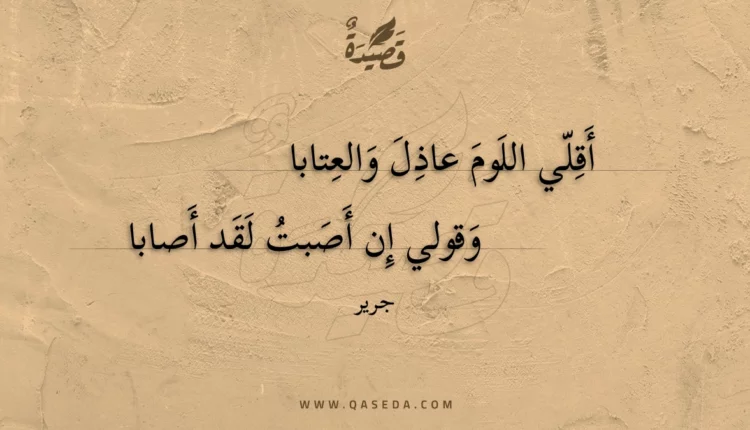 قَصِيدَةٌ
أَقِلّي اللَومَ عاذِلَ وَالعِتابا
وَقولي إِن أَصَبتُ لَقَد أَصابا
جرير
WWW.QASEDA.COM